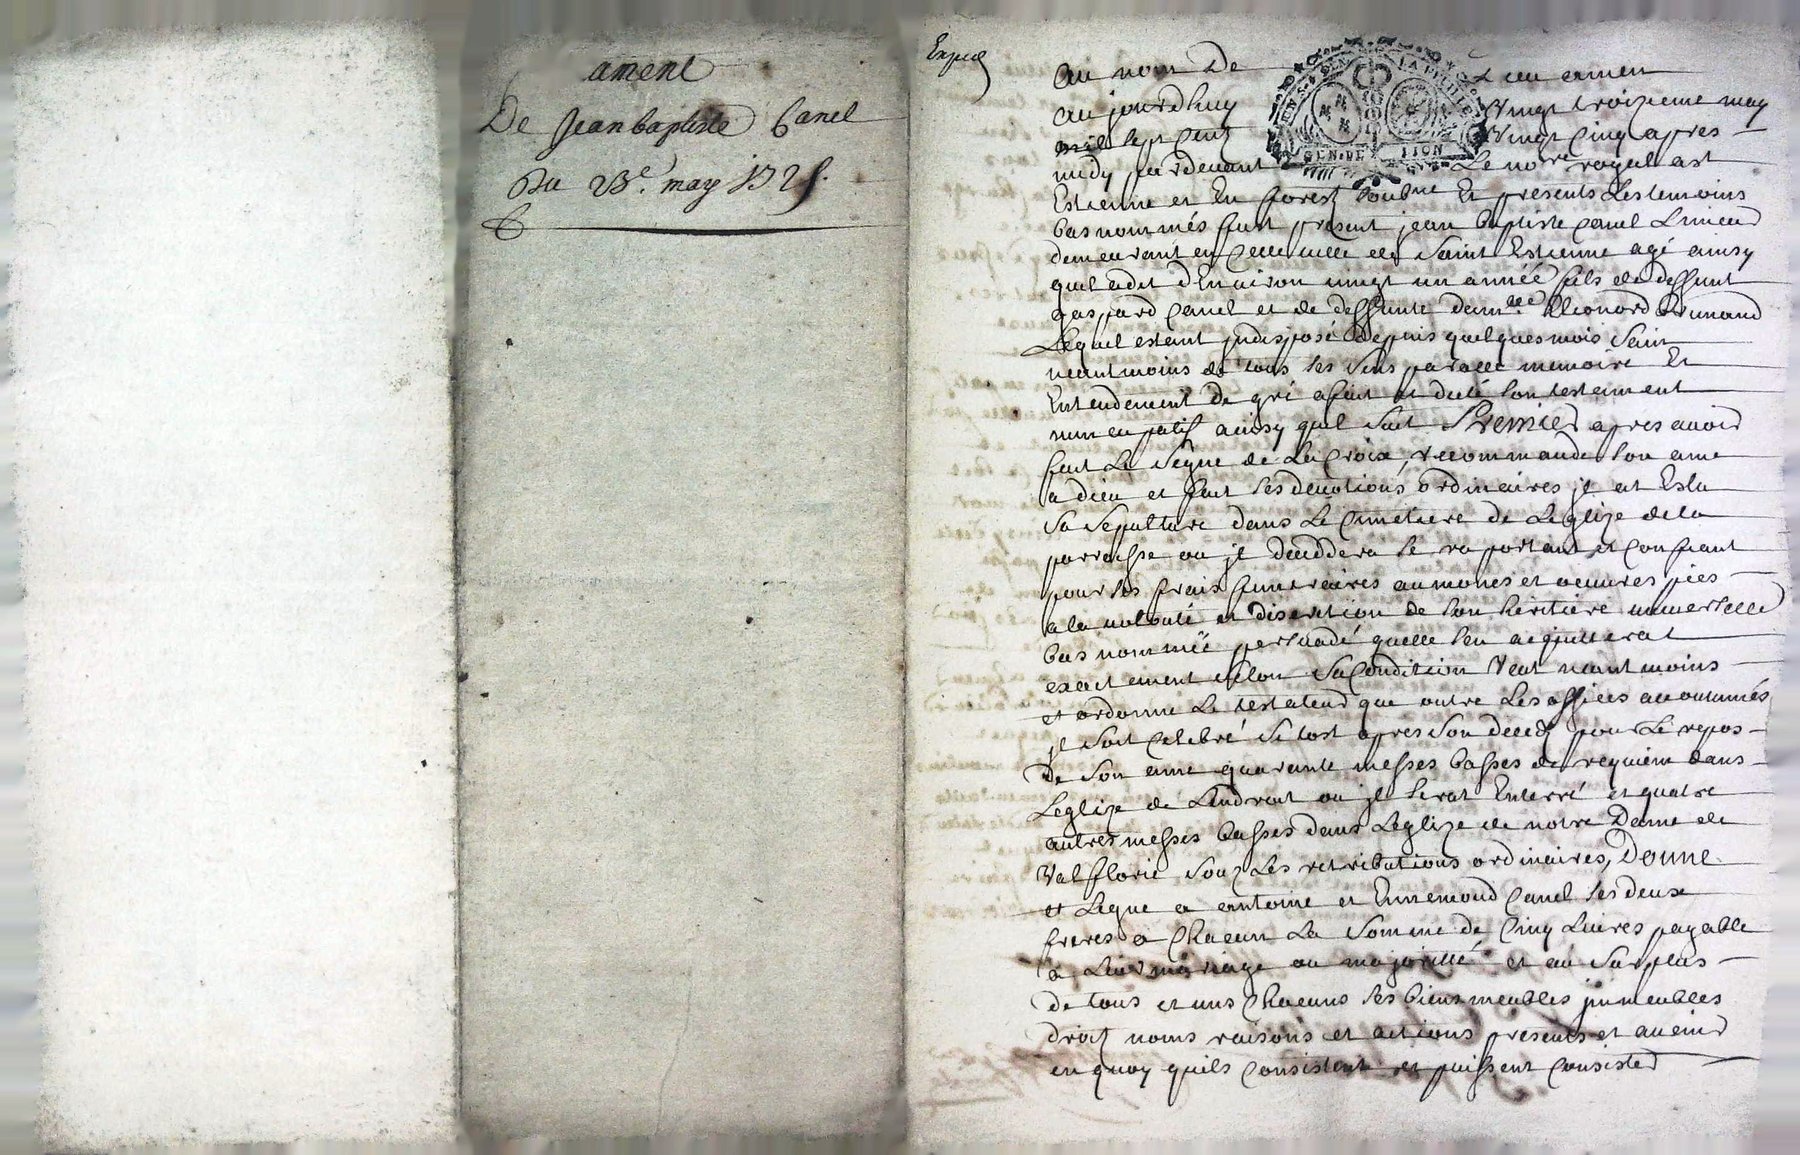 ament
De Jean baptiste Canel
Du 23e. may 1725.
Au nom De
amen
Aujourdhuy
vingt troizieme may
mil sept cent
vingt Cinq apres
midy par devant
Le nore royal a st
Estienne et En forest soubne Et presents Les temoins
bas nommés fust present jean baptiste Canel
demeurant en Cette ville de Saint Estienne agé ainsy
quil a dit d'Environ vingt un année fils de deffunt
gaspard Canel et de deffunte damlle Eleonord
Lequel estant jndisposé depuis quelques mois Sain
neantmoins de tous ses Sens parolle memoire Et
Entendement de gré a fait et dicté son testament
nuncupatif ainsy quil Suit Premier apres avoir
fait Le Signe de La Croix, recommandé son ame
a dieu et fait ses devotions ordinaires jl at Eslu
Sa Sepulture dans Le Cimetiere de Leglize de la
parroisse ou jl deceddera Se raportant et Confiant
pour ses fraix funeraires aumones et oeuvres pies
a la volonté et discretion de son heritiere universelle
bas nommée persuadé quelle Sen acquitterat
exactement selon Sa Condition Veut neantmoins
et ordonne Le testateur que outre Les offices accoutumés
jl Soit Celebré Sitost apres Son deceds pour Le repos
de Son ame quarante messes basses de requiem dans
Leglize de Lendroit ou jl Serat Enterré et quatre
autres messes basses dans Leglize de notre Dame de
Valfloric Souz Les retributions ordinaires, Donne
et Legue a antoine et Ennemond Canel ses deux
freres a Chacun La Somme de Cinq Livres payable
a Leur mariage ou majorité et au Surplus
de tous et uns Chacuns ses biens meubles jmmeubles
droit noms raisons et actions presents et avenir
en quoy quils Consistent et puissent Consister